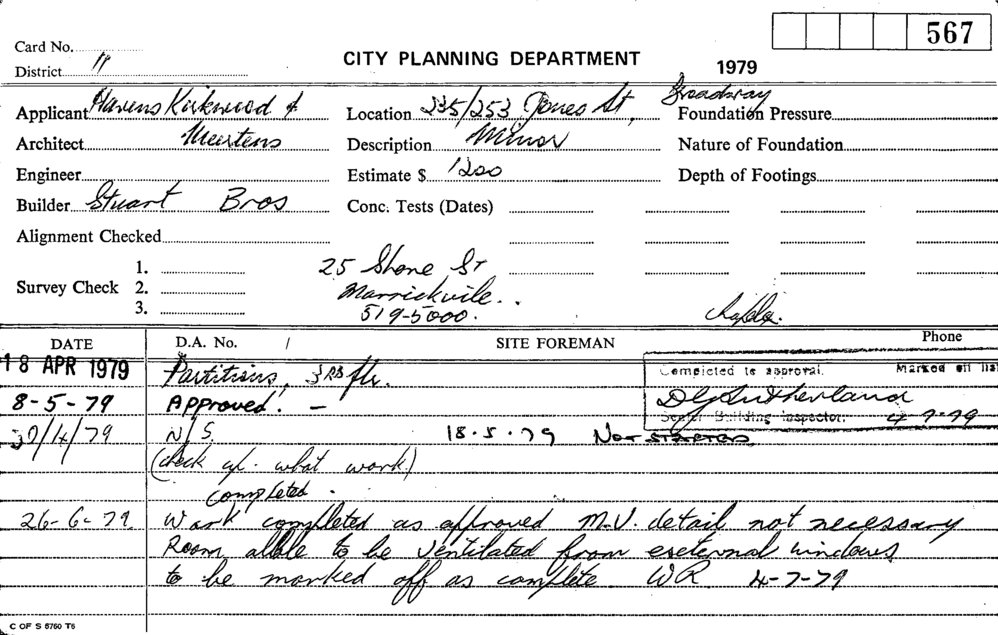 567
Card No.
District 11
CITY PLANNING DEPARTMENT
1979
Applicant Havens Kirkwood &
Location 235/253 Jones St, Broadway
Foundation Pressure
Architect Meertens
Description Minor
Nature of Foundation
Engineer
Estimate $ 1200
Depth of Footings
Builder Stuart Bros
Conc. Tests (Dates)
Alignment Checked
Survey Check 1.
2.
3.
25 Shone St
Marrickvile..
519-5000.
DATE D.A. No. / SITE FOREMAN Phone
18 APR 1979 Partitions, 3RD flr.
Completed to approval. Marked off list
8-5-79 Approved! -
DG Sutherland
Senior Building Inspector. 4-7-79
30/4/79 N/S. 18.5.79 Not started
(check what work)
completed.
26-6-79 Work completed as approved M.V. detail not necessary
Room, allble to be ventilated from exeternal windows
to be marked off as complete WR 4-7-79
C OF S 5750 T6